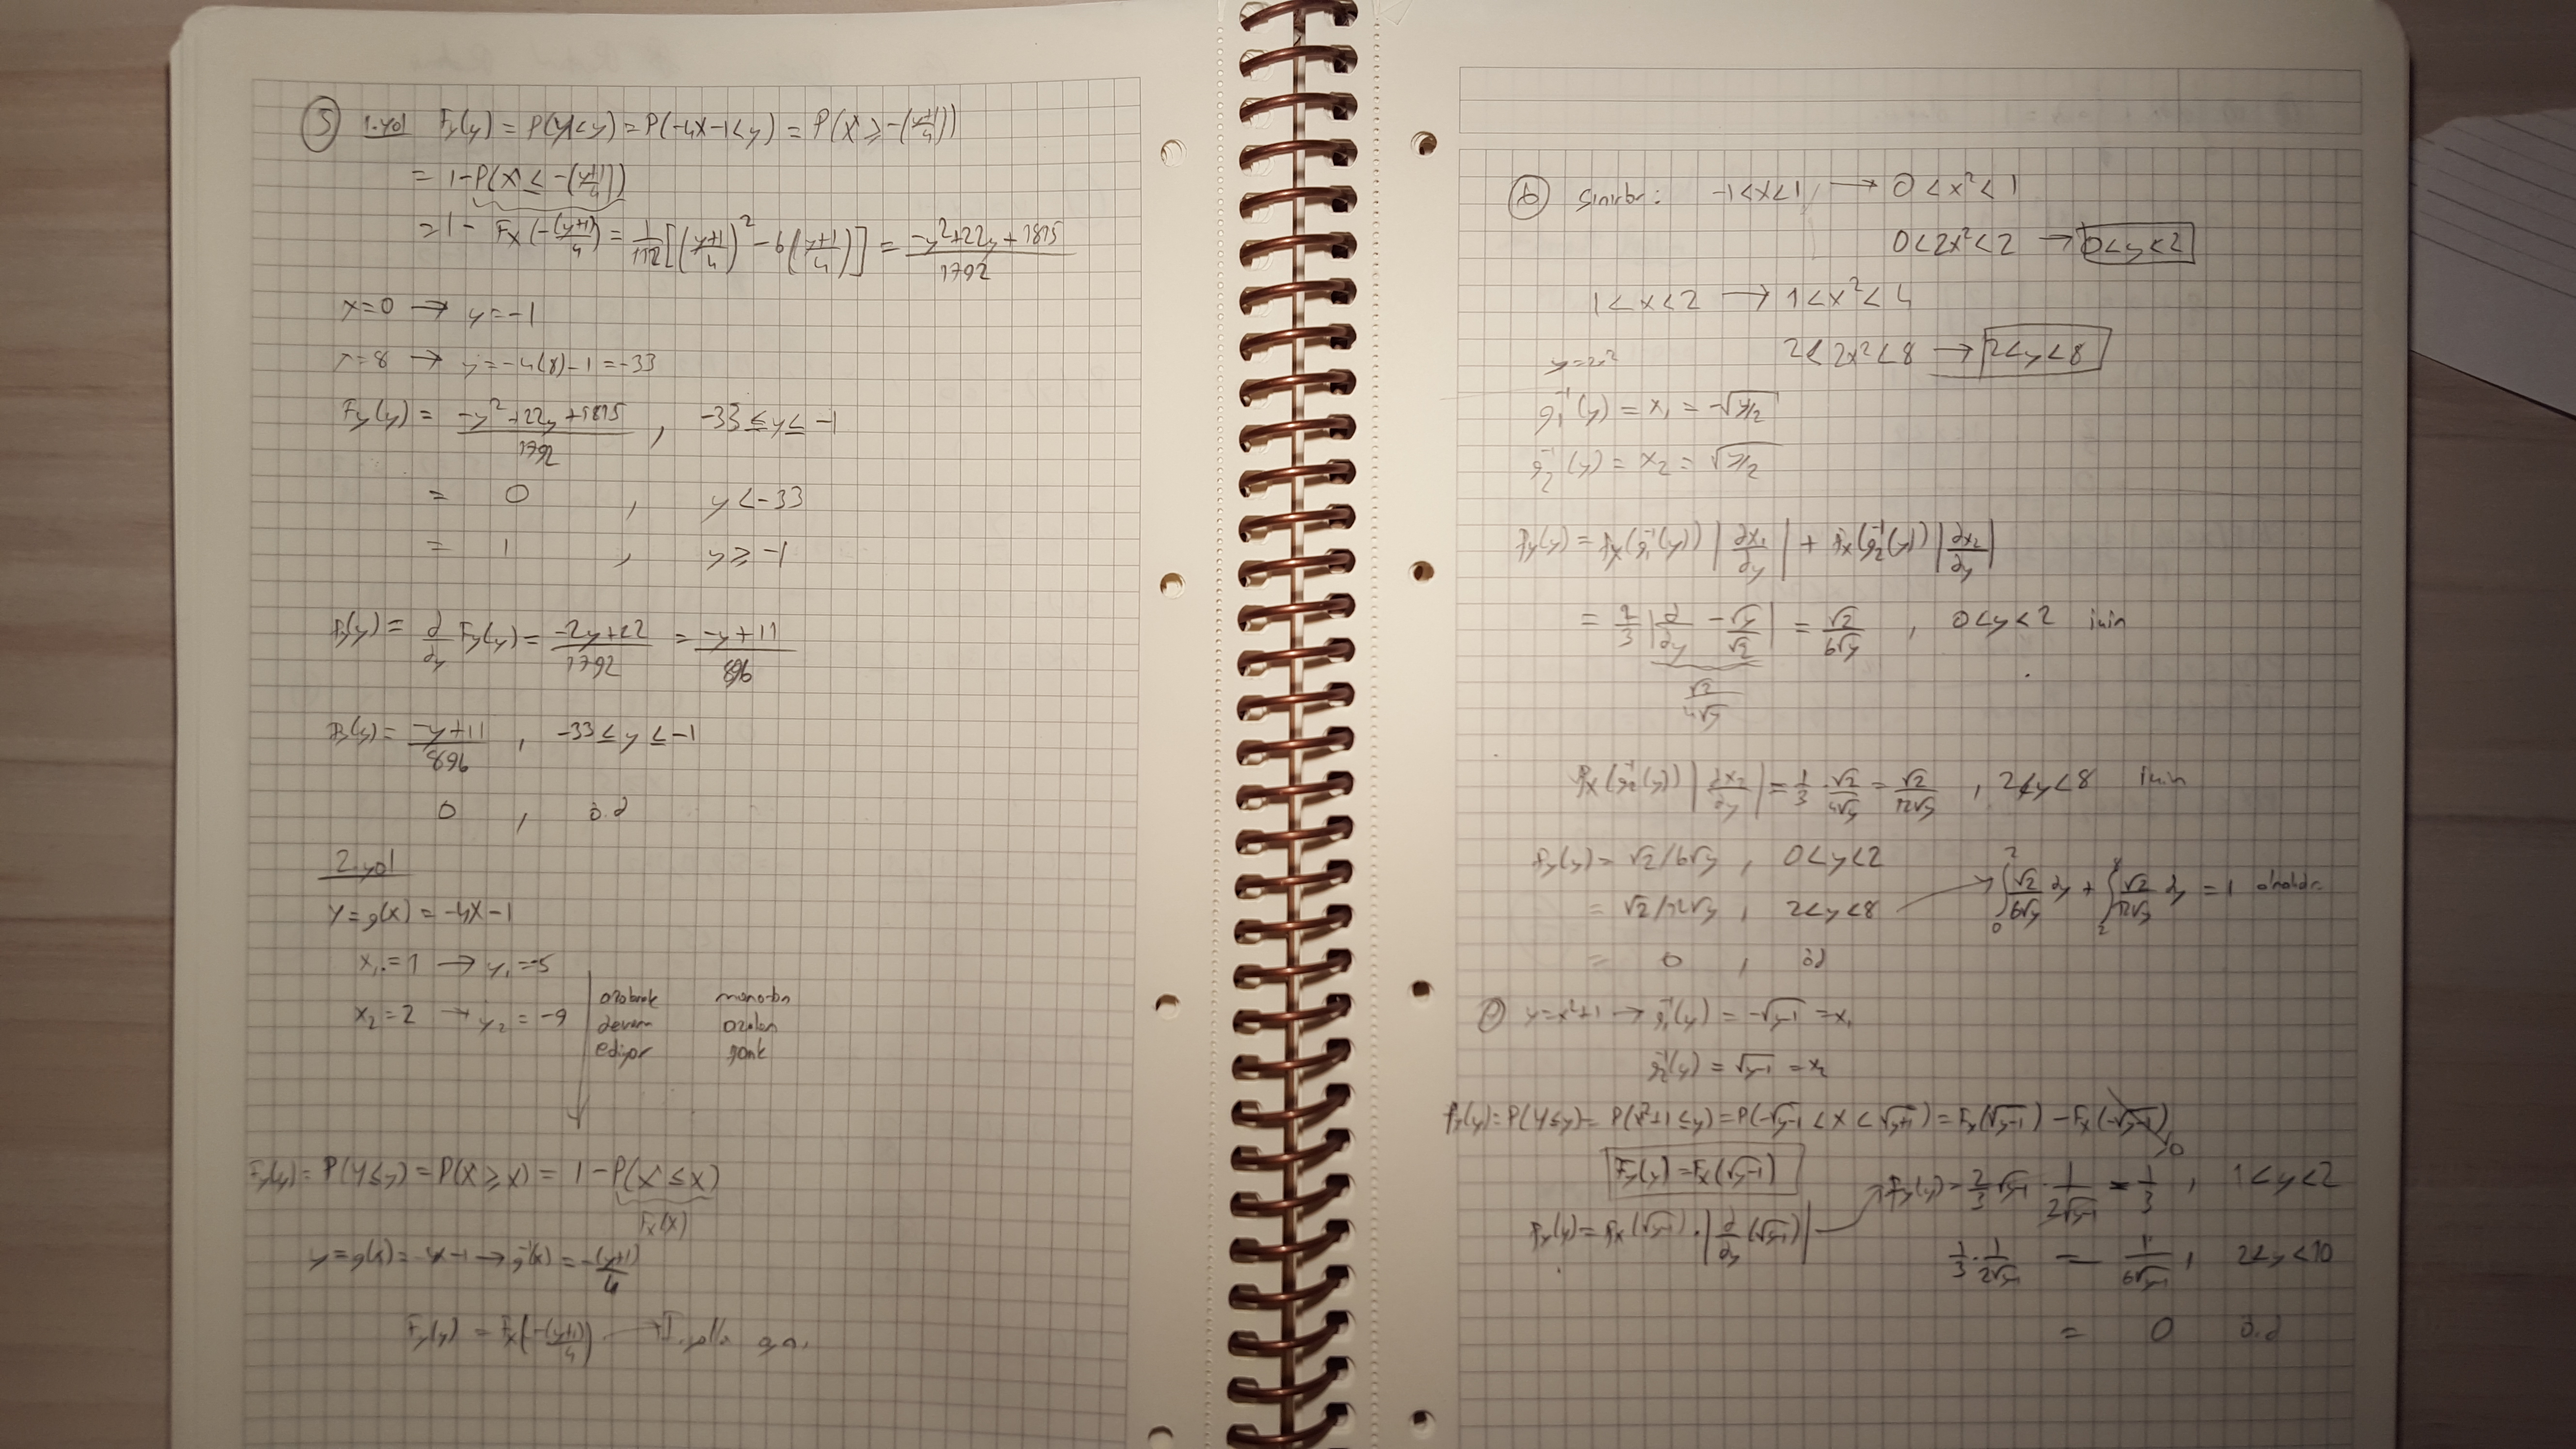 5 1.yol Fy(y) = P(Y<y) = P(-4X-1<y) = P(X ≥ -(y+1/4))
= 1-P(X ≤ -(y+1/4))
= 1 - Fx(-(y+1)/4) = 1/112[(y+1/4)² - 6(y+1/4)] = -y²+22y+1815/1792
x=0 → y=-1
x=8 → y=-4(8)-1=-33
Fy(y) = -y²+22y+1815/1792 , -33≤y≤-1
= 0 , y<-33
= 1 , y≥-1
fy(y) = ∂/∂y Fy(y) = -2y+22/1792 = -y+11/896
fy(y) = -y+11/896 , -33≤y≤-1
0 , ö.d
2.yol
Y=g(x) = -4X-1
x₁=1 → y₁=-5
x₂=2 → y₂=-9
azalarak
devam
ediyor
monoton
azalan
Fy(y) = P(Y≤y) = P(X≥x) = 1-P(X≤x)
Fx(x)
y=g(x)=-4x-1 → g⁻¹(x) = -(y+1)/4
Fy(y) = Fx(-(y+1)/4) → I.yolla aynı
b Sınırlar: -1<x<1 → 0<x²<1
0<2x²<2 → 0<y<2
1<x<2 → 1<x²<4
y=2x² 2<2x²<8 → 2<y<8
g₁⁻¹(y) = x₁ = -√y/2
g₂⁻¹(y) = x₂ = √y/2
fy(y) = fx(g₁⁻¹(y)) |∂x₁/∂y| + fx(g₂⁻¹(y)) |∂x₂/∂y|
= 2/3 |∂/∂y -√y/√2| = √2/6√y , 0<y<2 için
√2/4√y
fx(g₂⁻¹(y)) |∂x₂/∂y| = 1/3 · √2/4√y = √2/12√y , 2<y<8 için
fy(y) = √2/6√y , 0<y<2
= √2/12√y , 2<y<8 → ∫₀² √2/6√y ∂y + ∫₂⁸ √2/12√y ∂y = 1 olmalıdır.
= 0 , öd
y=x²+1 → g₁⁻¹(y) = -√y-1 = x₁
g₂⁻¹(y) = √y-1 = x₂
Fy(y) = P(Y≤y) = P(x²+1≤y) = P(-√y-1 < X < √y-1) = Fx(√y-1) - Fx(-√y-1) 0
Fy(y) = Fx(√y-1)
fy(y) = fx(√y-1) · |∂/∂y (√y-1)|
fy(y) = 2/3 √y-1 · 1/2√y-1 = 1/3 , 1<y<2
1/3 · 1/2√y-1 = 1/6√y-1 , 2<y<10
= 0 ö.d